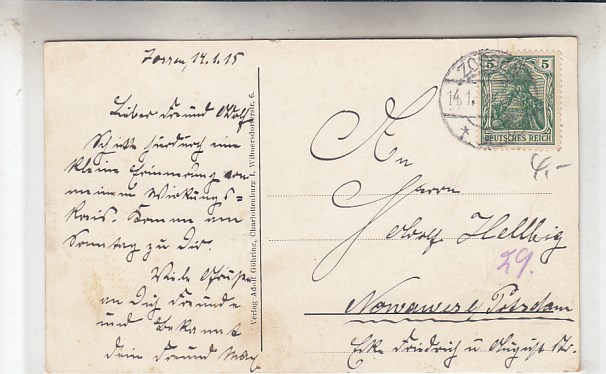 Zossen, 14.1.15
Lieber Freund Adolf
Schicke hierdurch eine
kleine Erinnerung von
meinem Wirkungs-
kreis. Komme am
Sonntag zu Dir.
Viele Grüße
an Dich Freunde
und Bekannte
Dein Freund Max
Verlag Adolf Göhring, Charlottenburg 1, Wilmersdorferstr. 6.
ZOSSEN
14.1.
5 5
DEUTSCHES REICH
4,-
An
Herrn
Adolf Hellbig
29.
Nowawes b/ Potsdam
Ecke Friedrich u August Str.